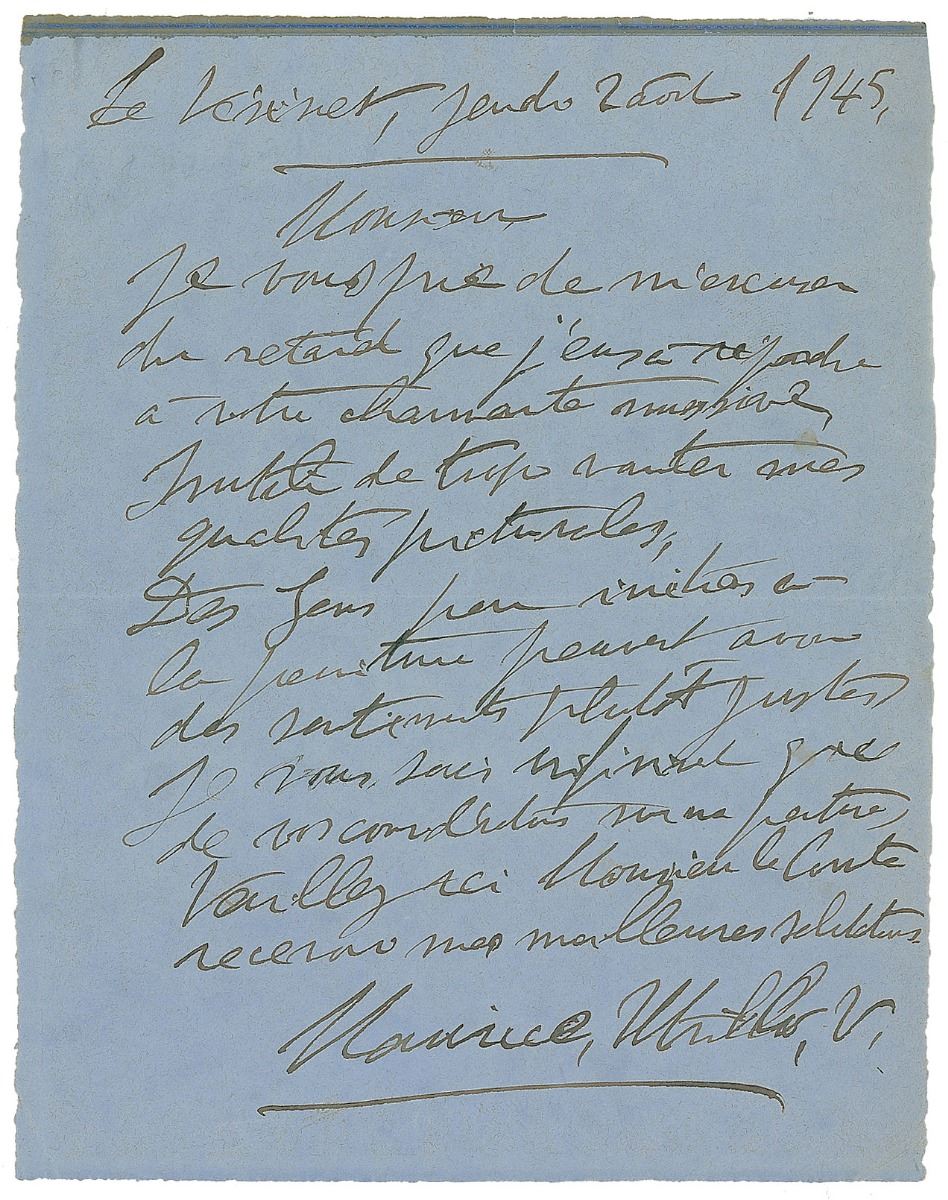 Le Vésinet, jeudi 2 août 1945,
Monsieur
Je vous prie de m'excuser
du retard que j'eus à répondre
à votre charmante missive,
Inutile de trop vanter mes
qualités picturales,
Des Gens peu initiés à
la peinture peuvent avoir
des sentiments plutôt justes
Je vous sais infiniment gré
de vos sur ma peinture,
Veuillez ici Monsieur le Comte
recevoir mes meilleures salutations.
Maurice, Utrillo, V,